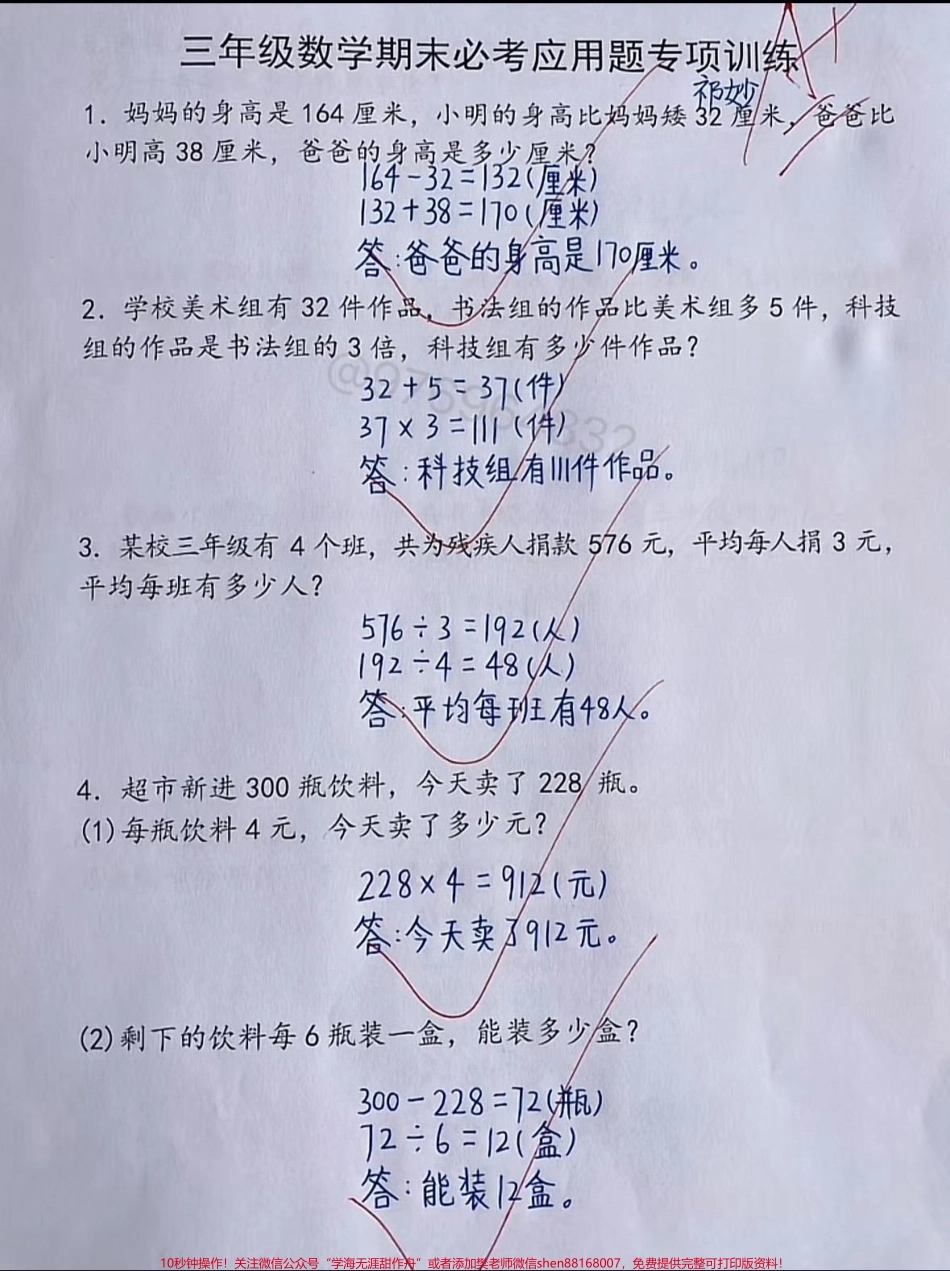 三年级数学期末必考应用题专项训练
A+
祁妙
1. 妈妈的身高是 164 厘米，小明的身高比妈妈矮 32 厘米，爸爸比
小明高 38 厘米，爸爸的身高是多少厘米？
164-32=132(厘米)
132+38=170(厘米)
答:爸爸的身高是170厘米。
2. 学校美术组有 32 件作品，书法组的作品比美术组多 5 件，科技
组的作品是书法组的 3 倍，科技组有多少件作品？
32+5=37(件)
37×3=111(件)
答:科技组有111件作品。
3. 某校三年级有 4 个班，共为残疾人捐款 576 元，平均每人捐 3 元，
平均每班有多少人？
576÷3=192(人)
192÷4=48(人)
答:平均每班有48人。
4. 超市新进 300 瓶饮料，今天卖了 228 瓶。
(1)每瓶饮料 4 元，今天卖了多少元？
228×4=912(元)
答:今天卖了912元。
(2)剩下的饮料每 6 瓶装一盒，能装多少盒？
300-228=72(瓶)
72÷6=12(盒)
答:能装12盒。
10秒钟操作！关注微信公众号“学海无涯甜作舟”或者添加樊老师微信shen88168007，免费提供完整可打印版资料！